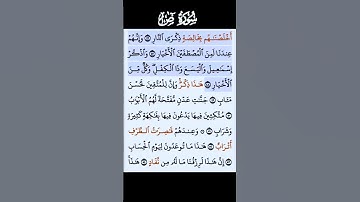 سُورَةُ صٓ
أَخْلَصْنَـٰهُم بِخَالِصَةٍ ذِكْرَى ٱلدَّارِ ۝ وَإِنَّهُمْ
عِندَنَا لَمِنَ ٱلْمُصْطَفَيْنَ ٱلْأَخْيَارِ ۝ وَٱذْكُرْ
إِسْمَـٰعِيلَ وَٱلْيَسَعَ وَذَا ٱلْكِفْلِ ۖ وَكُلٌّ مِّنَ
ٱلْأَخْيَارِ ۝ هَـٰذَا ذِكْرٌ ۚ وَإِنَّ لِلْمُتَّقِينَ لَحُسْنَ
مَـَٔابٍ ۝ جَنَّـٰتِ عَدْنٍ مُّفَتَّحَةً لَّهُمُ ٱلْأَبْوَٰبُ
۝ مُتَّكِـِٔينَ فِيهَا يَدْعُونَ فِيهَا بِفَـٰكِهَةٍ كَثِيرَةٍ
وَشَرَابٍ ۝ وَعِندَهُمْ قَـٰصِرَٰتُ ٱلطَّرْفِ
أَتْرَابٌ ۝ هَـٰذَا مَا تُوعَدُونَ لِيَوْمِ ٱلْحِسَابِ
۝ إِنَّ هَـٰذَا لَرِزْقُنَا مَا لَهُۥ مِن نَّفَادٍ ۝ هَـٰذَا